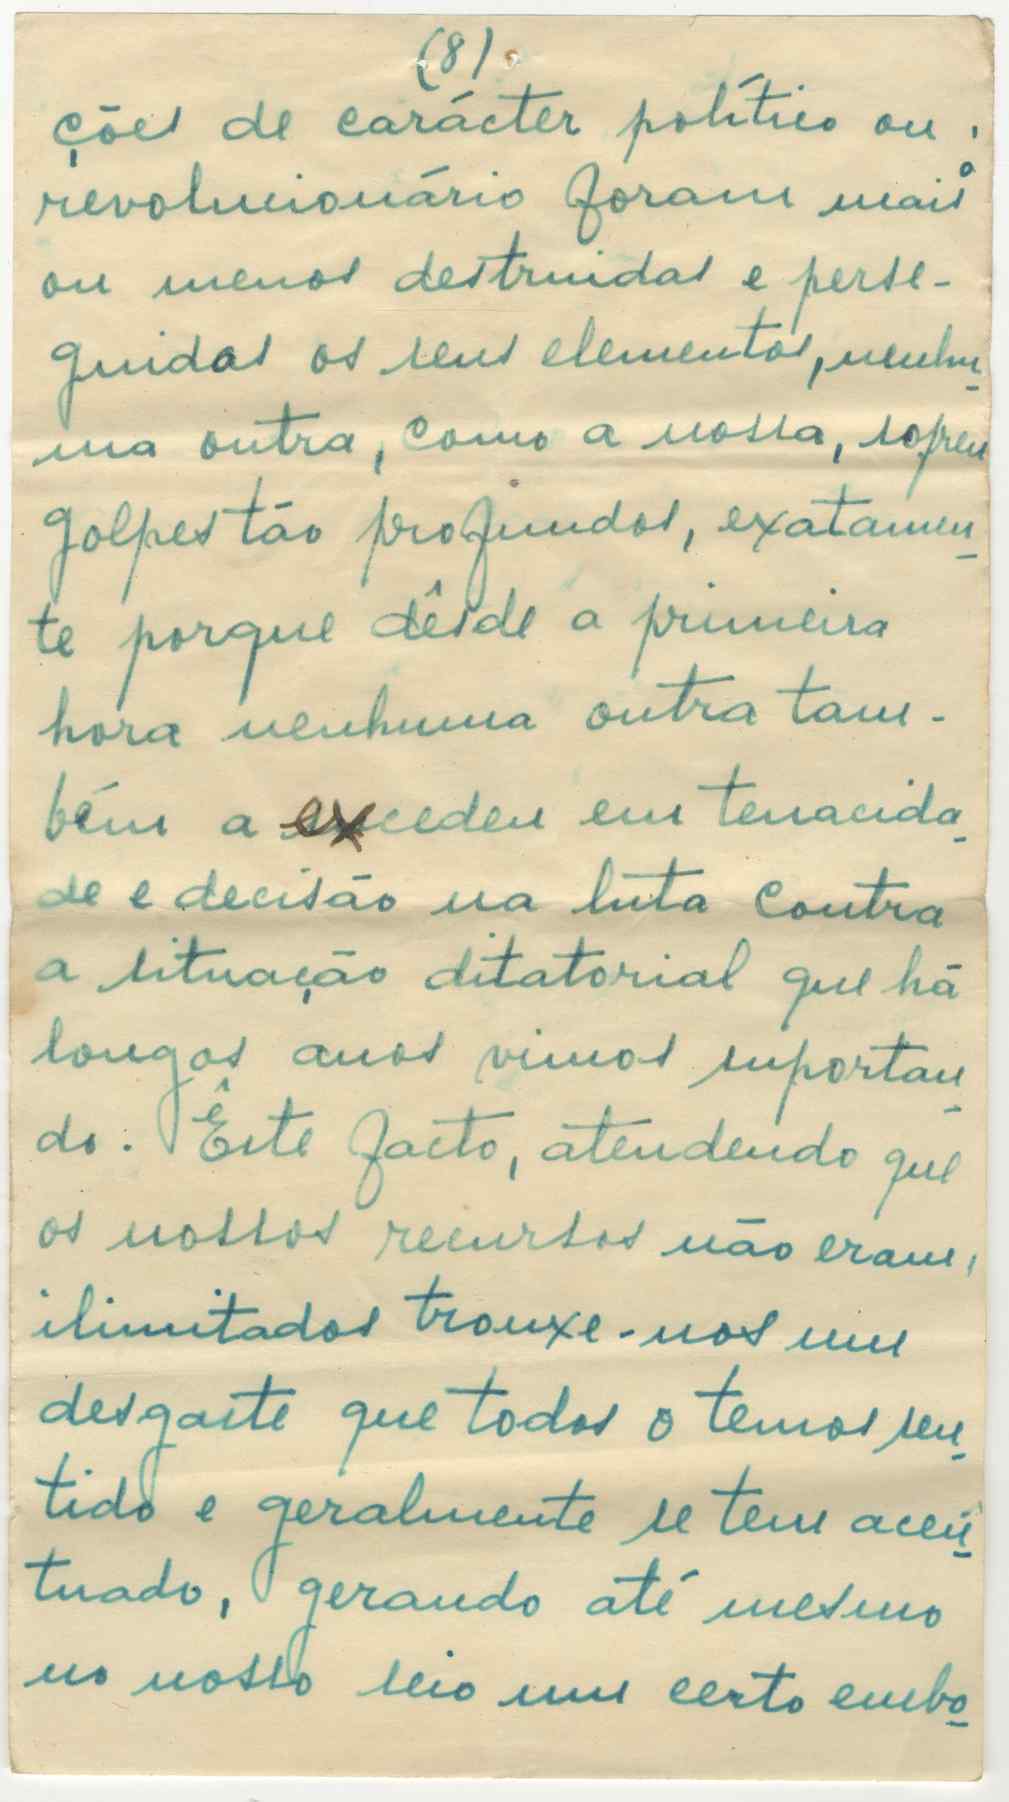 (8)
ções de carácter político ou
revolucionário foram mais
ou menos destruidas e perse-
guidas os seus elementos, nenhu-
ma outra, como a nossa, sofreu
golpes tão profundos, exatamen-
te porque dêsde a primeira
hora nenhuma outra tam-
bém a excedeu em tenacida-
de e decisão na luta contra
a situação ditatorial que há
longos anos vimos suportan-
do. Êste facto, atendendo que
os nossos recursos não eram,
ilimitados trouxe-nos um
desgaste que todos o temos sen-
tido e geralmente se tem acen-
tuado, gerando até mesmo
no nosso seio um certo embo-